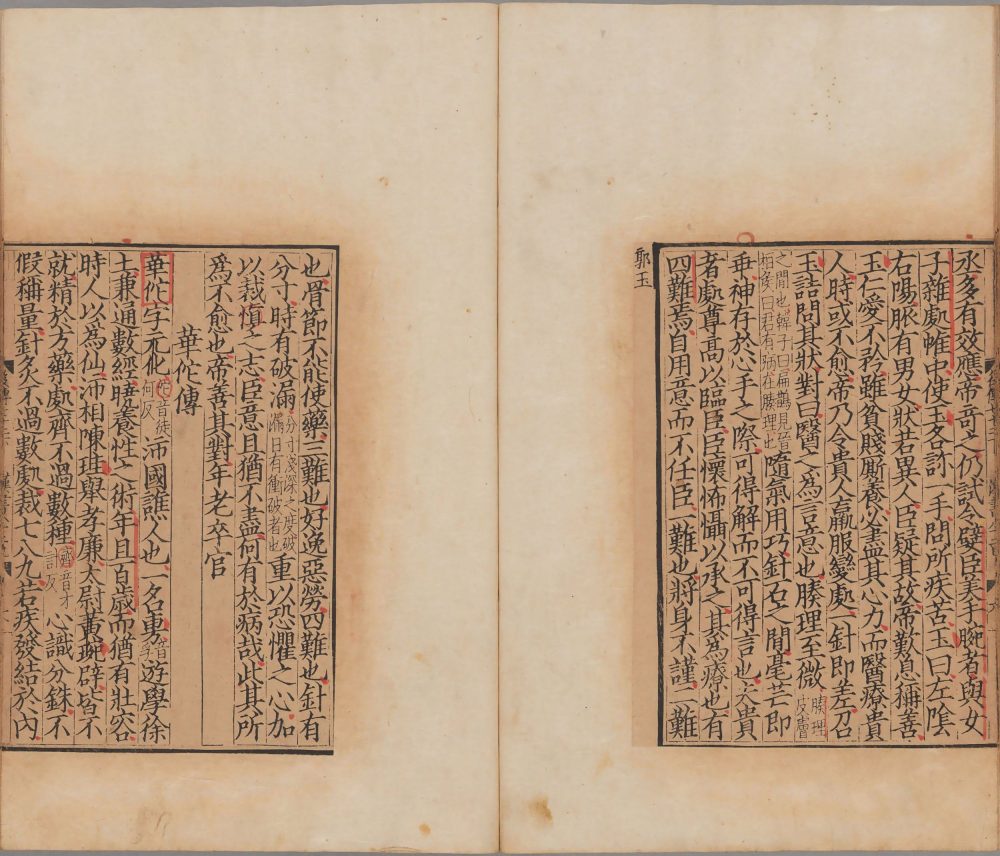 丞多有效應帝奇之仍試令嬖臣美手腕者與女
子雜處帷中使玉各診一手問所疾苦玉曰左陰
右陽脉有男女狀若異人臣疑其故帝歎息稱善
玉仁愛不矜雖貧賤廝養必盡其心力而醫療貴
人時或不愈帝乃令貴人羸服變處一針即差召
玉詰問其狀對曰醫之爲言意也腠理至微腠理皮膚
之閒也韓子曰扁鵲見晉桓侯曰君有病在腠理也隨氣用巧針石之閒毫芒即
乖神存於心手之際可得解而不可得言也夫貴
者處尊高以臨臣臣懷怖懾以承之其爲療也有
四難焉自用意而不任臣一難也將身不謹二難
郭玉
也骨節不能使藥三難也好逸惡勞四難也針有
分寸時有破漏分寸淺深之度破漏日有衝破者也重以恐懼之心加
以裁慎之志臣意且猶不盡何有於病哉此其所
爲不愈也帝善其對年老卒官
華佗傳
華佗字元化佗音徒何反沛國譙人也一名旉音孚遊學徐
土兼通數經曉養性之術年且百歲而猶有壯容
時人以爲仙沛相陳珪舉孝廉太尉黃琬辟皆不
就精於方藥處齊不過數種齊音才計反心識分銖不
假稱量針灸不過數處裁七八九若疾發結於內